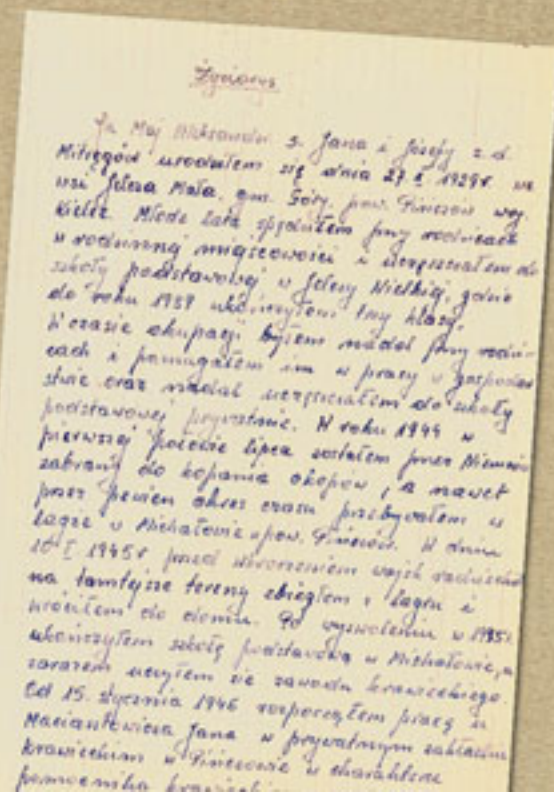 Życiorys
Ja Maj Aleksander s. Jana i Józefy z d.
Mitręgów urodziłem się dnia 27 I 1929 r. we
wsi Jelcza Mała, gm. Góry, pow. Pińczów woj.
Kielce. Młode lata spędziłem przy rodzicach
w rodzinnej miejscowości i uczęszczałem do
szkoły podstawowej w Jelczy Wielkiej, gdzie
do roku 1939 ukończyłem trzy klasy.
W czasie okupacji byłem nadal przy rodzi-
cach i pomagałem im w pracy w gospodar
stwie oraz nadal uczęszczałem do szkoły
podstawowej prywatnie. W roku 1944 w
pierwszej połowie lipca zostałem przez Niemców
zabrany do kopania okopów, a nawet
przez pewien okres czasu przebywałem w
łagrze w Michałowie pow. Pińczów. W dniu
10 I 1945 r przed wkroczeniem wojsk radzieckich
na tamtejsze tereny zbiegłem z łagru i
wróciłem do domu. Po wyzwoleniu w 1945 r.
ukończyłem szkołę podstawową w Michałowie, a
zarazem uczyłem się zawodu krawieckiego.
Od 15. stycznia 1946 rozpocząłem pracę u
Maciantowicza Jana w prywatnym zakładzie
krawieckim w Pińczowie w charakterze
pomocnika